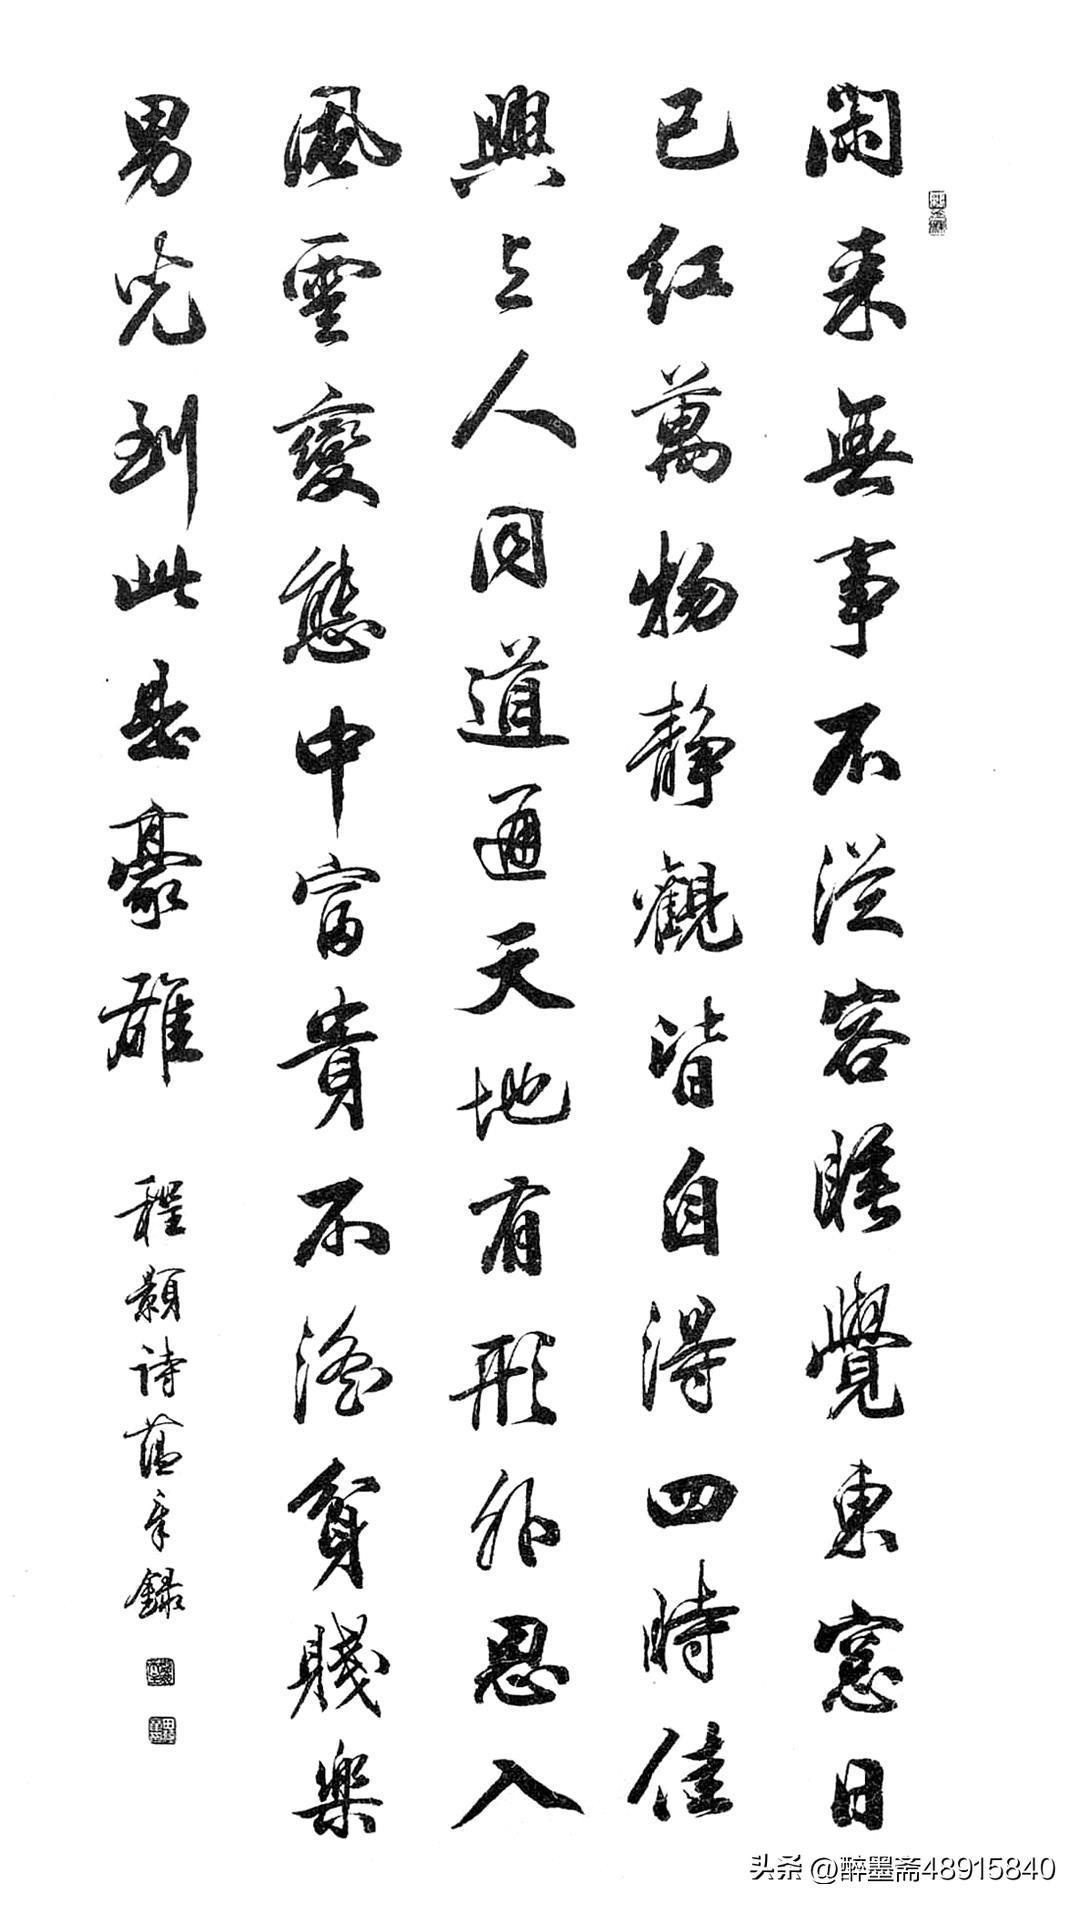 閑来無事不從容睡覺東窓日
已红萬物静觀皆自得四時佳
興与人同道通天地有形外思入
風雲變態中富貴不淫貧賤樂
男児到此是豪雄
程顥诗 録
头条 @醉墨斋48915840